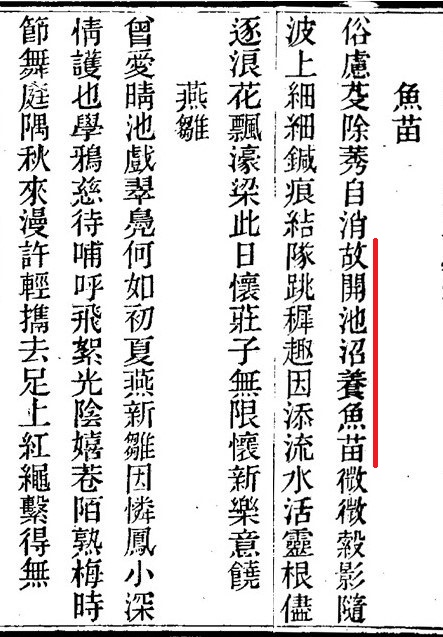 魚苗
俗慮芟除莠自消故開池沼養魚苗微微縠影隨
波上細細鍼痕結隊跳穉趣因添流水活靈根儘
逐浪花飄濠梁此日懷莊子無限懷新樂意饒
燕雛
曾愛晴池戲翠鳧何如初夏燕新雛因憐鳳小深
情護也學鴉慈待哺呼飛絮光陰嬉巷陌熟梅時
節舞庭隅秋來漫許輕擕去足上紅繩繫得無